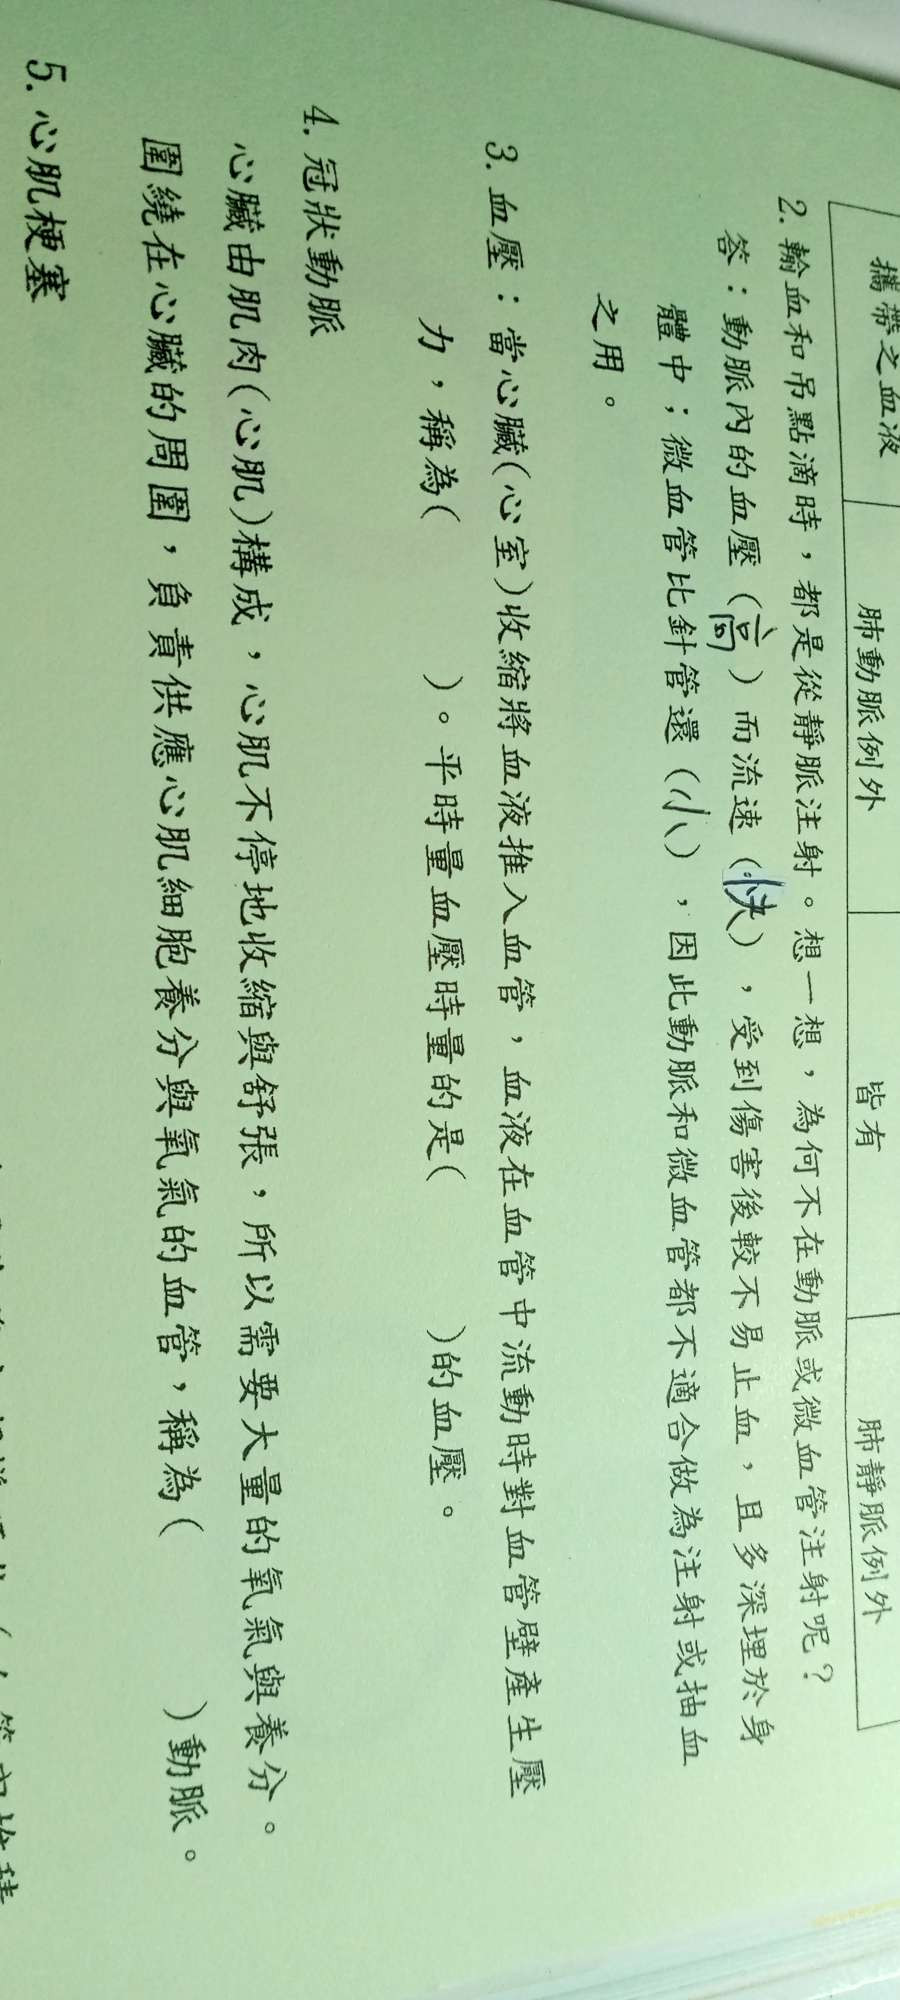 攜帶之血液 肺動脈例外 皆有 肺靜脈例外
2. 輸血和吊點滴時，都是從靜脈注射。想一想，為何不在動脈或微血管注射呢？
答：動脈內的血壓（高）而流速（快），受到傷害後較不易止血，且多深埋於身
體中；微血管比針管還（小），因此動脈和微血管都不適合做為注射或抽血
之用。
3. 血壓：當心臟(心室)收縮將血液推入血管，血液在血管中流動時對血管壁產生壓
力，稱為(　　　　)。平時量血壓時量的是(　　　　)的血壓。
4. 冠狀動脈
心臟由肌肉(心肌)構成，心肌不停地收縮與舒張，所以需要大量的氧氣與養分。
圍繞在心臟的周圍，負責供應心肌細胞養分與氧氣的血管，稱為(　　　　)動脈。
5. 心肌梗塞